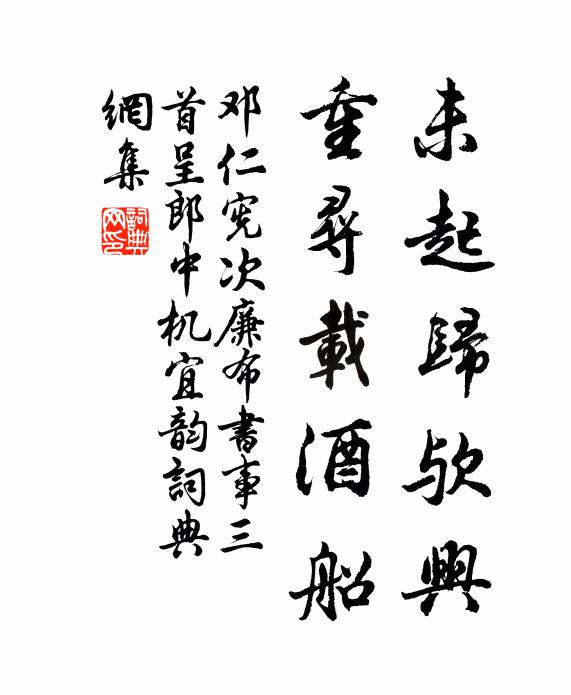 未起歸欤興
重尋載酒船
邓仁宪次廉布書事三
首呈郎中机宜韵詞典
網集
詞典网印